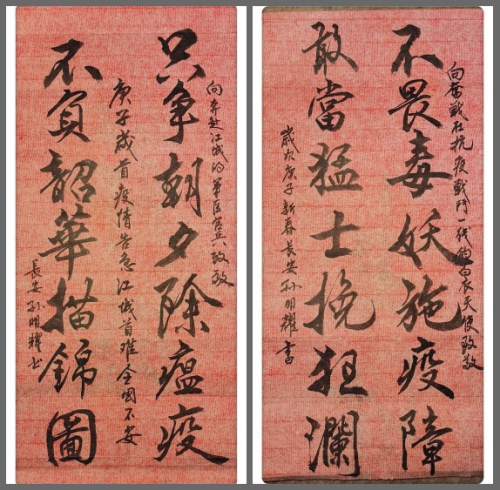 向奮战在抗疫戰鬥一线的白衣天使致敬
不畏毒妖施疫障
敢當猛士挽狂瀾
歲次庚子新春長安孙明耀書
向奔赴江城的軍医官兵致敬
只争朝夕除瘟疫
庚子歲首疫情告急江城首难全國不安
不負韶華描錦圖
長安孙明耀书